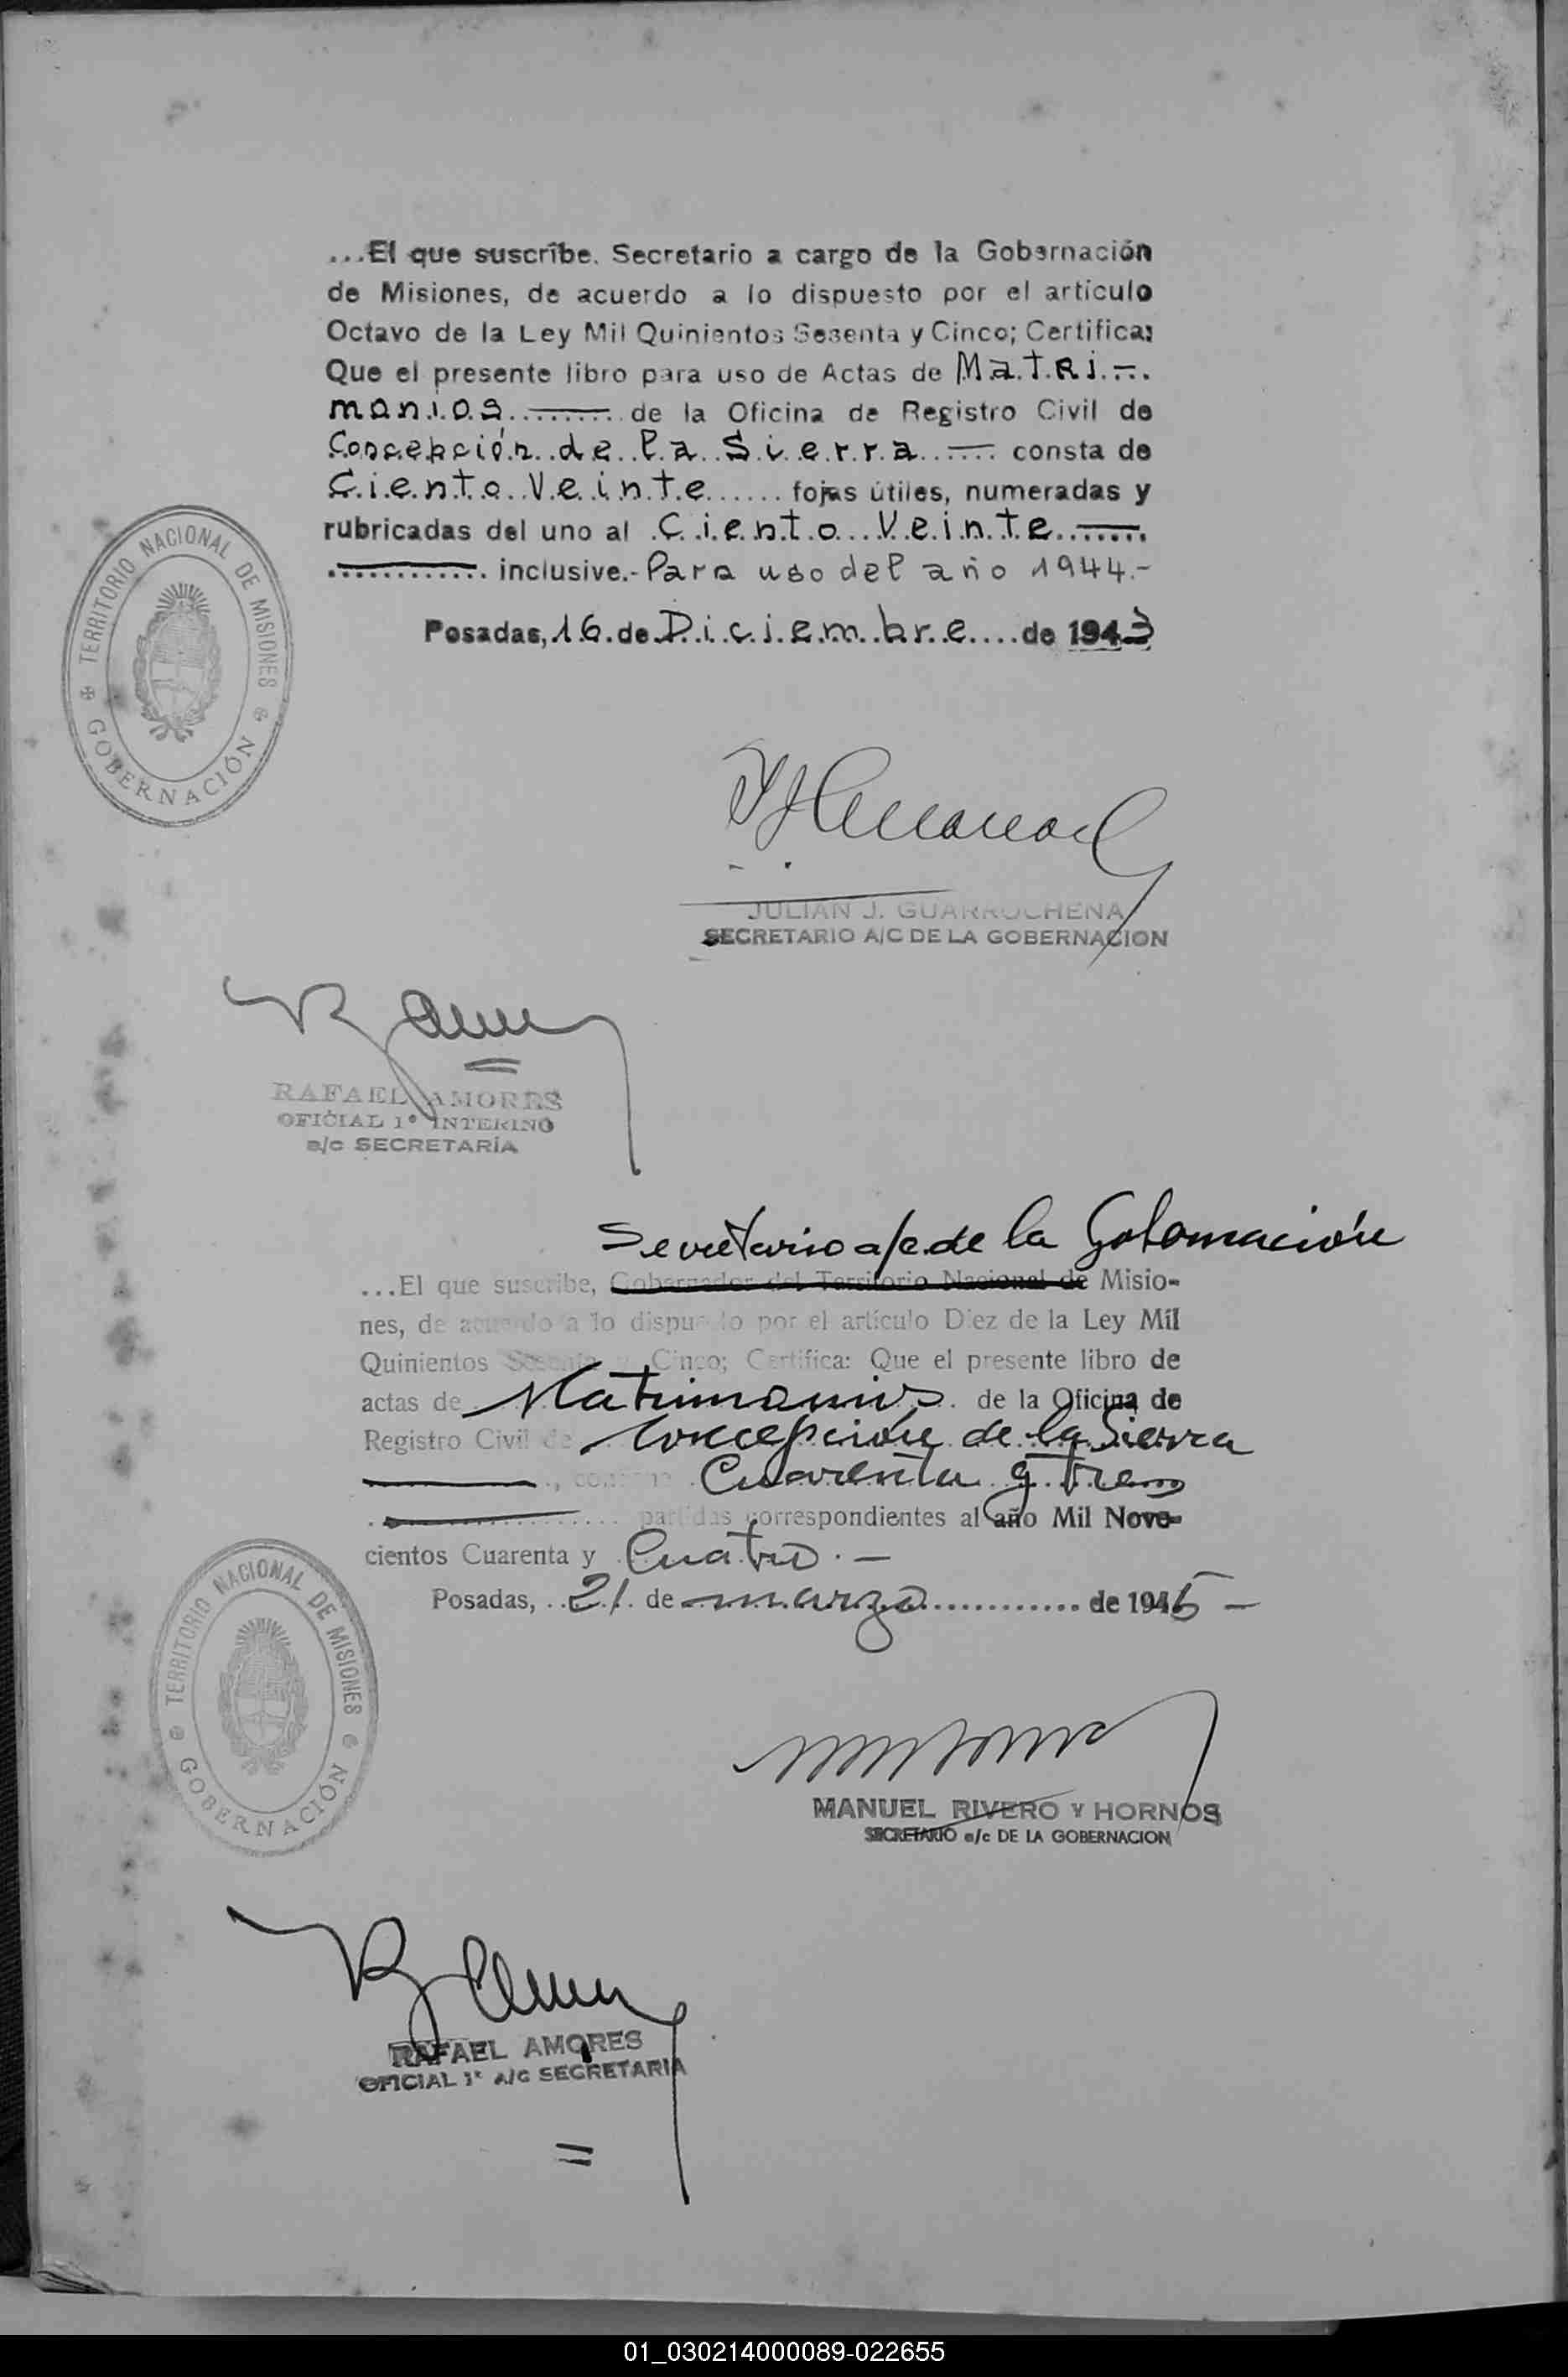 ...El que suscribe. Secretario a cargo de la Gobernación
de Misiones, de acuerdo a lo dispuesto por el artículo
Octavo de la Ley Mil Quinientos Sesenta y Cinco; Certifica:
Que el presente libro para uso de Actas de Matri-
monios de la Oficina de Registro Civil de
Concepción de la Sierra consta de
Ciento Veinte fojas útiles, numeradas y
rubricadas del uno al Ciento Veinte
inclusive.- Para uso del año 1944.-
Posadas, 16 de Diciembre de 1943
TERRITORIO NACIONAL DE MISIONES
GOBERNACIÓN
JULIAN J. GUARROCHENA
SECRETARIO A/C DE LA GOBERNACION
RAFAEL AMORES
OFICIAL 1º INTERINO
a/c SECRETARÍA
Secretario a/c. de la Gobernación
...El que suscribe, Gobernador del Territorio Nacional de Misio-
nes, de acuerdo a lo dispuesto por el artículo Diez de la Ley Mil
Quinientos Sesenta y Cinco; Certifica: Que el presente libro de
actas de Matrimonios de la Oficina de
Registro Civil de Concepción de la Sierra
, contiene Cuarenta y tres
partidas correspondientes al año Mil Nove-
cientos Cuarenta y Cuatro.-
Posadas, 21 de marzo de 1945-
TERRITORIO NACIONAL DE MISIONES
GOBERNACIÓN
MANUEL RIVERO Y HORNOS
SECRETARIO a/c DE LA GOBERNACION
RAFAEL AMORES
OFICIAL 1º A/C SECRETARIA
01_030214000089-022655